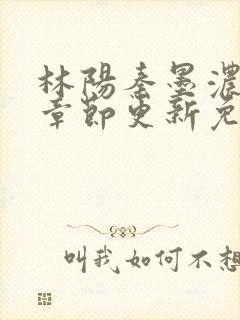 林陽秦墨濃
章節更新免
叫我如何不想